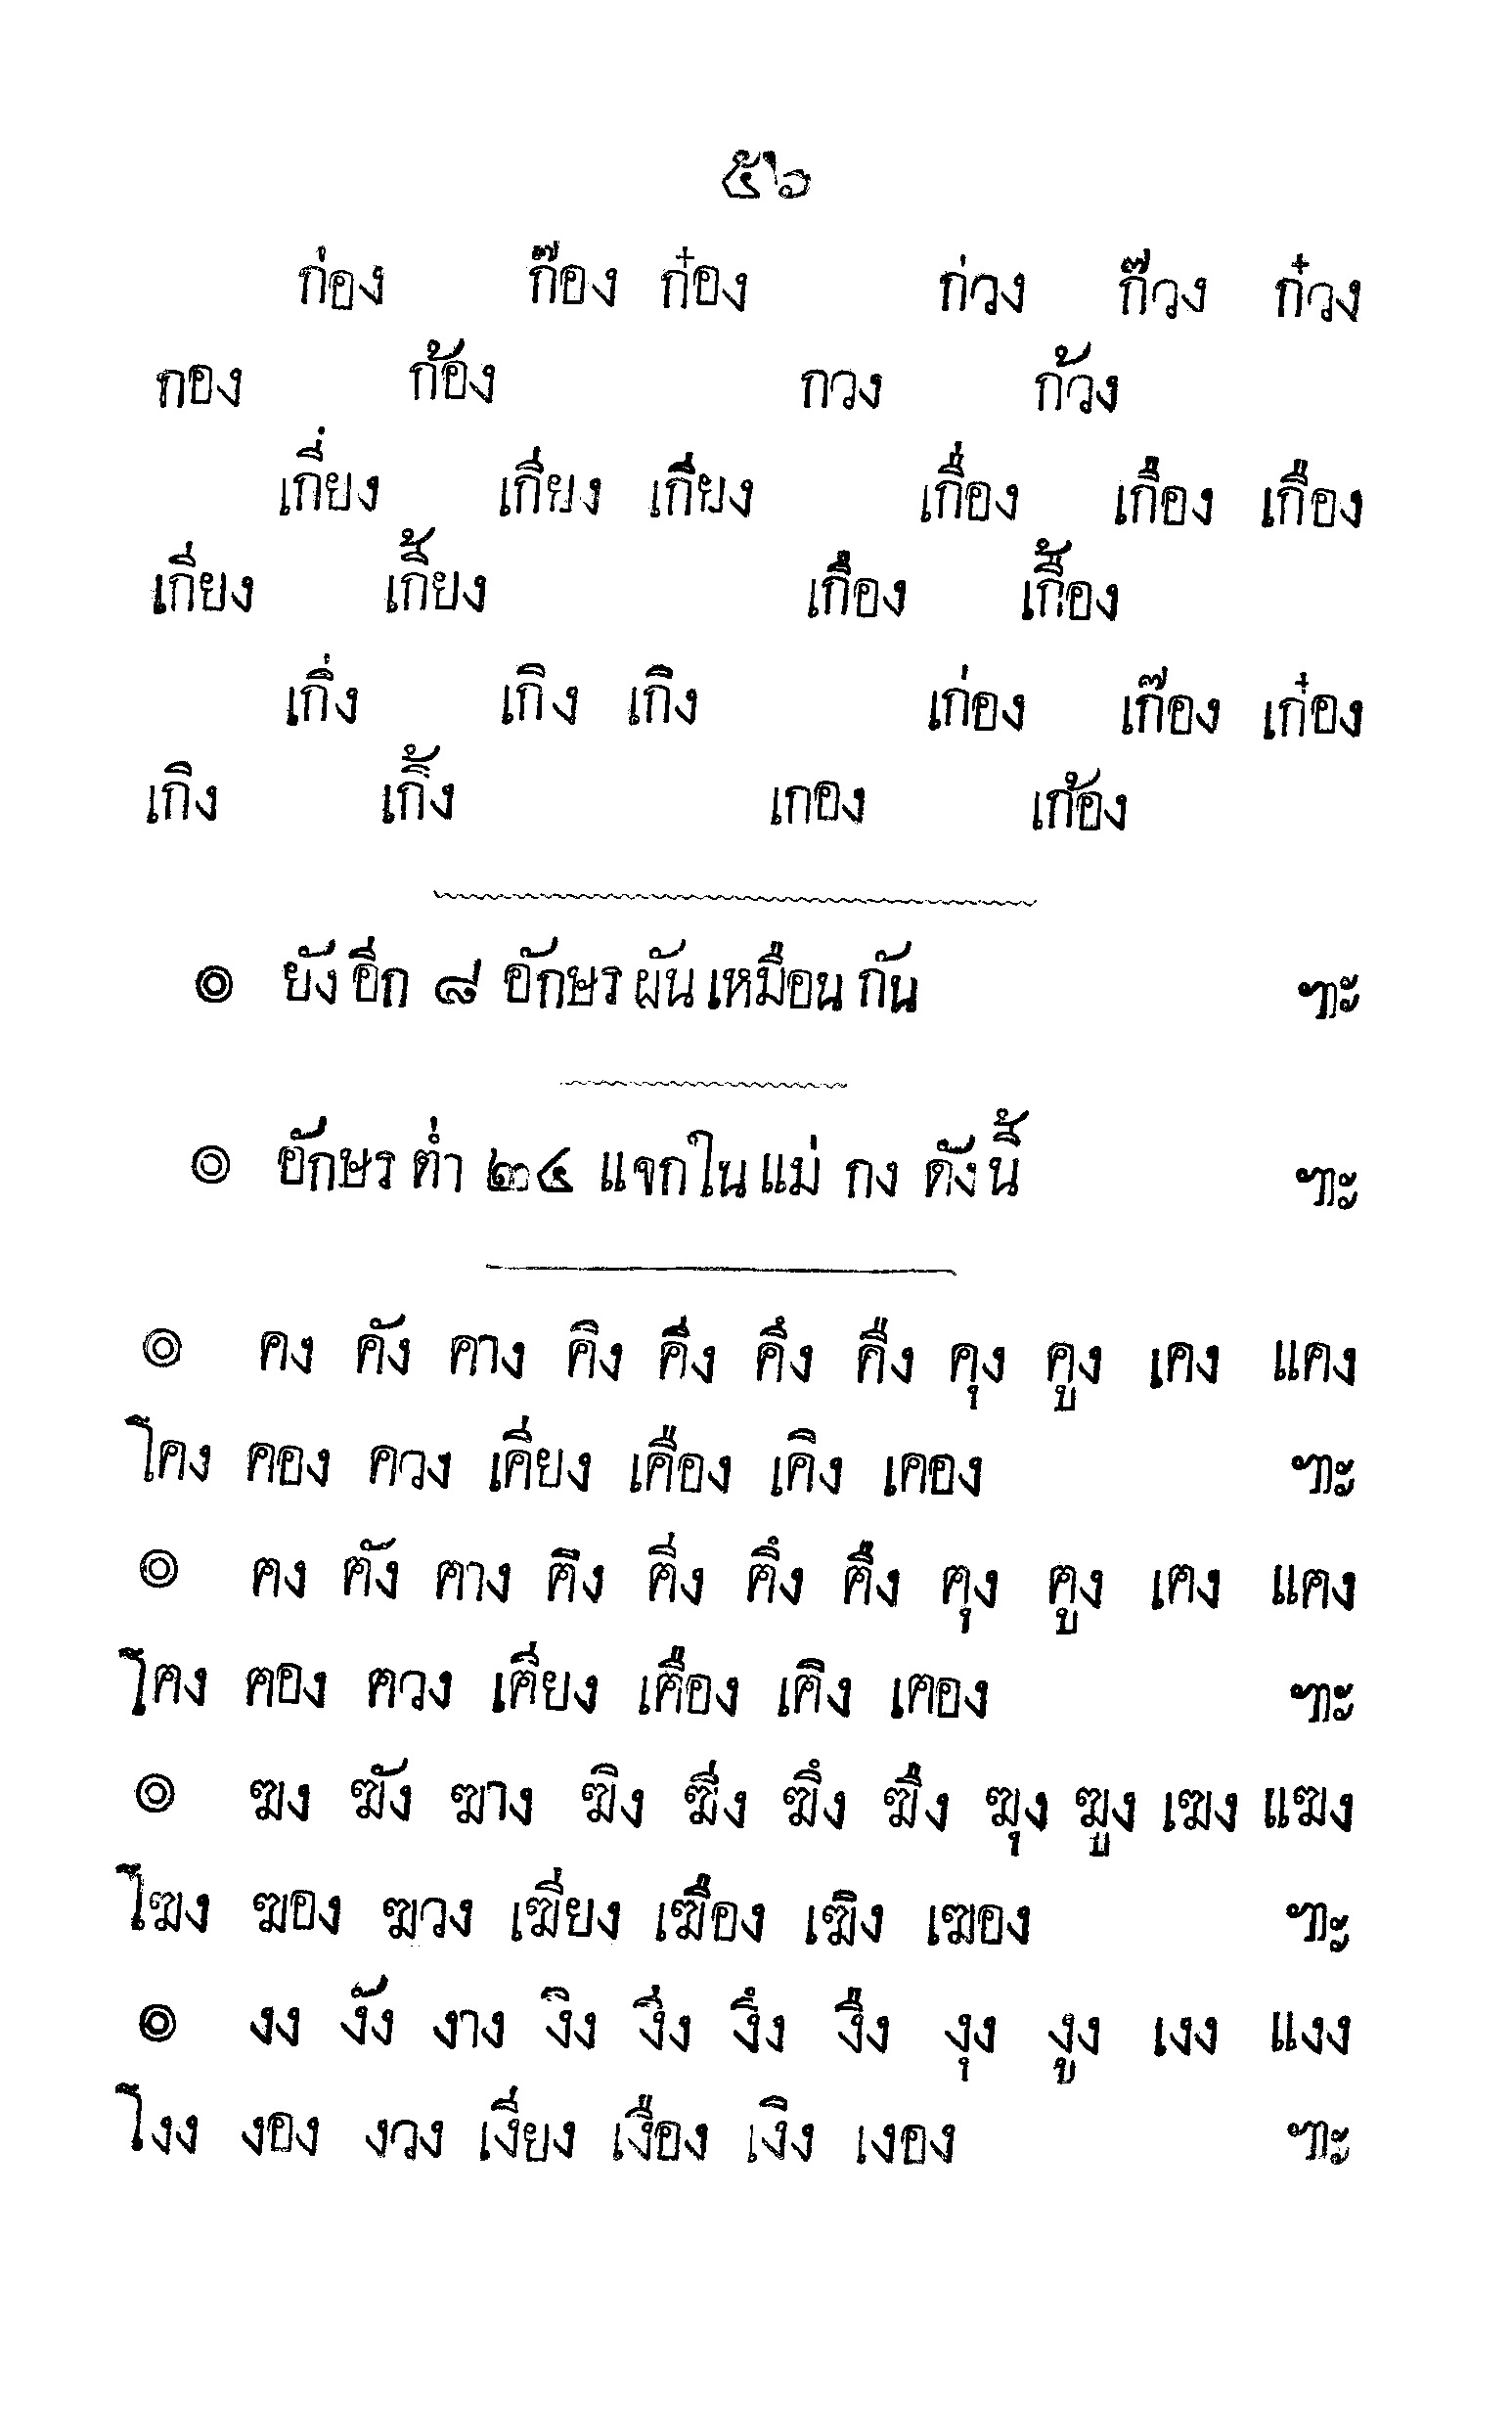 ๕๖
ก่อง ก๊อง ก๋อง ก่วง ก๊วง ก๋วง
กอง ก้อง กวง ก้วง
เกี่ยง เกียง เกียง เกื่อง เกือง เกือง
เกียง เกี้ยง เกือง เกื้อง
เกิ่ง เกิง เกิง เก่อง เก๊อง เก๋อง
เกิง เกิ้ง เกอง เก้อง
๏ ยังอีก ๘ อักษรผันเหมือนกัน ฯะ
๏ อักษรต่ำ ๒๔ แจกในแม่ กง ดังนี้ ฯะ
๏ คง คัง คาง คิง คีง คึง คืง คุง คูง เคง แคง
โคง คอง ควง เคียง เคือง เคิง เคอง ฯะ
๏ ฅง ฅัง ฅาง ฅิง ฅีง ฅึง ฅืง ฅุง ฅูง เฅง แฅง
โฅง ฅอง ฅวง เฅียง เฅือง เฅิง เฅอง ฯะ
๏ ฆง ฆัง ฆาง ฆิง ฆีง ฆึง ฆืง ฆุง ฆูง เฆง แฆง
โฆง ฆอง ฆวง เฆียง เฆือง เฆิง เฆอง ฯะ
๏ งง งัง งาง งิง งีง งึง งืง งุง งูง เงง แงง
โงง งอง งวง เงียง เงือง เงิง เงอง ฯะ